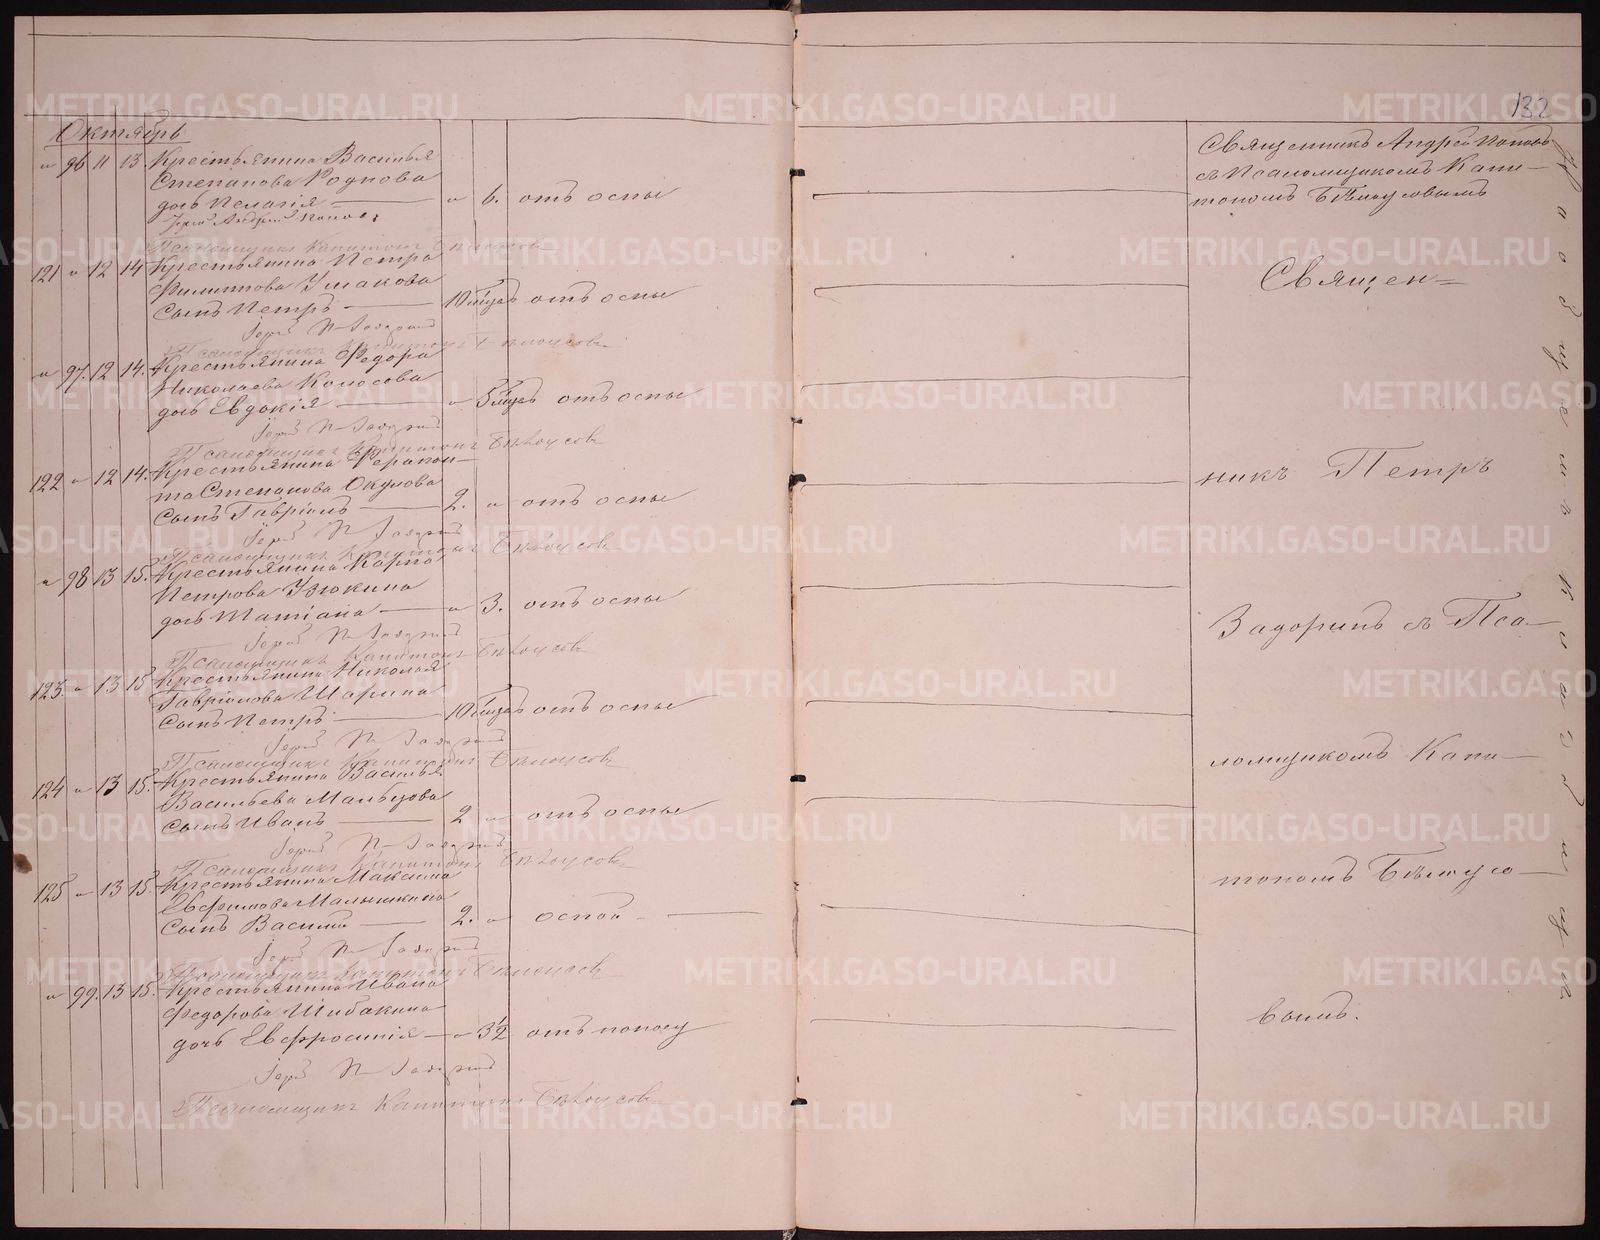 132
Октябрь
" 96 11 13. Крестьянина Василья
Степанова Роднова
дочь Пелагія — " 6. отъ оспы
Іерей Андрей Поповъ
Псаломщикъ Капитонъ Бѣлоусовъ
121 " 12 14 Крестьянина Петра
Филиппова Ушакова
сынъ Петръ — 10 мѣсяц отъ оспы
Іерей П. Задоринъ
Псаломщикъ Капитонъ Бѣлоусовъ
" 97. 12 14. Крестьянина Федора
Николаева Колосова
дочь Евдокія — " 5 мѣсяц отъ оспы
Іерей П. Задоринъ
Псаломщикъ Капитонъ Бѣлоусовъ
122 " 12 14. Крестьянина Ферапон-
та Степанова Окулова
сынъ Гавріилъ — 2. " отъ оспы
Іерей П. Задоринъ
Псаломщикъ Капитонъ Бѣлоусовъ
" 98 13 15. Крестьянина Карпа
Петрова
дочь Татіана — " 3. отъ оспы
Іерей П. Задоринъ
Псаломщикъ Капитонъ Бѣлоусовъ
123 " 13 15 Крестьянина Николая
Гавріилова Шарина
сынъ Петръ — 10 мѣсяц отъ оспы
Іерей П. Задоринъ
Псаломщикъ Капитонъ Бѣлоусовъ
124 " 13 15. Крестьянина Василья
Васильева Мальцова
сынъ Иванъ — 2 " отъ оспы
Іерей П. Задоринъ
Псаломщикъ Капитонъ Бѣлоусовъ
125 " 13 15. Крестьянина Максима
Евфимова Малышкина
сынъ Василій — 2. " оспой —
Іерей П. Задоринъ
Псаломщикъ Капитонъ Бѣлоусовъ
" 99. 13 15. Крестьянина Ивана
Федорова Шибакина
дочь Евфросинія — " 3½ отъ поносу
Іерей П. Задоринъ
Псаломщикъ Капитонъ Бѣлоусовъ
Священникъ Андрей Поповъ
съ Псаломщикомъ Капи-
тономъ Бѣлоусовымъ
Священ=
никъ Петръ
Задоринъ съ Пса-
ломщикомъ Капи-
тономъ Бѣлоусо-
вымъ.
METRIKI.GASO-URAL.RU